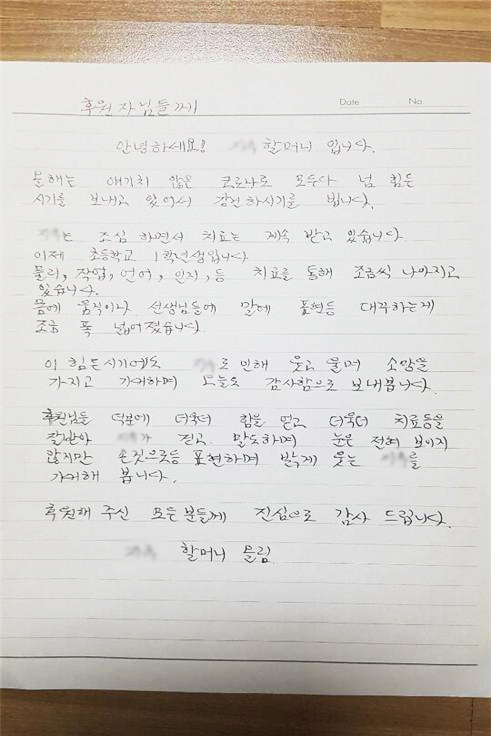 후원자님들께
Date . . No.
안녕하세요! 할머니 입니다.
올해는 얘기치 않은 코로나로 모두다 넘 힘든
시기를 보내고 있어서 강건하시기를 빕니다.
는 조심 하면서 치료는 계속 받고 있습니다.
이제 초등학교 1학년생입니다.
물리, 작업, 언어, 인지, 등 치료를 통해 조금씩 나아지고
있습니다.
몸에 움직이나 선생님들에 말에 표현등 대꾸하는게
조금 폭 넓어졌습니다.
이 힘든시기에도 로 인해 웃고 울며 소망을
가지고 기대하며 오늘도 감사함으로 보내봅니다.
후원님들 덕분에 더욱더 힘을 얻고 더욱더 치료등을
잘받아 가 걷고 말도하며 눈은 전혀 보이지
않지만 손짓으로등 표현하며 밝게 웃는 를
기대해 봅니다.
후원해 주신 모든분들께 진심으로 감사 드립니다.
할머니 올림